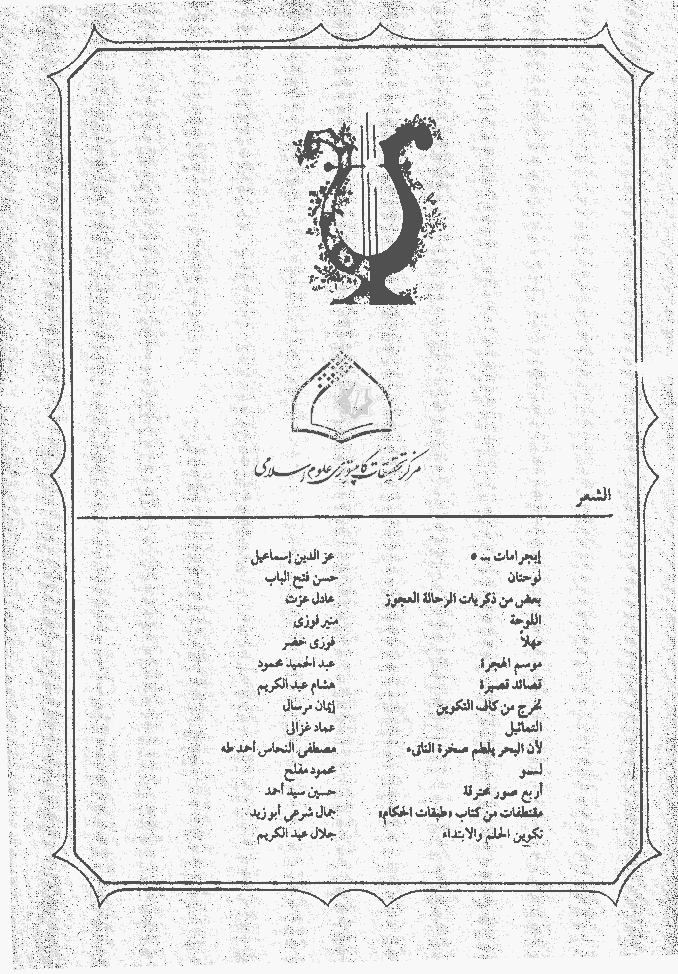 مركز تحقيقات كامپيوترى علوم اسلامى
الشعر
إبجرامات ... ٥ عز الدين إسماعيل
لوحتان حسن فتح الباب
بعض من ذكريات الرحالة العجوز عادل عزت
اللوحة منير فوزى
مهلاً فوزى خضر
موسم الهجرة عبد الحميد محمود
قصائد قصيرة هشام عبد الكريم
تخرج من كاف التكوين إيمان مرسال
التماثيل عماد غزالى
لأن البحر يلطم صخرة الناتىء مصطفى النحاس أحمد طه
لسمو محمود مفلح
أربع صور محترقة حسين سيد أحمد
مقتطفات من كتاب «طبقات الحكام» جمال شرعى أبو زيد
تكوين الحلم والابتداء جلال عبد الكريم